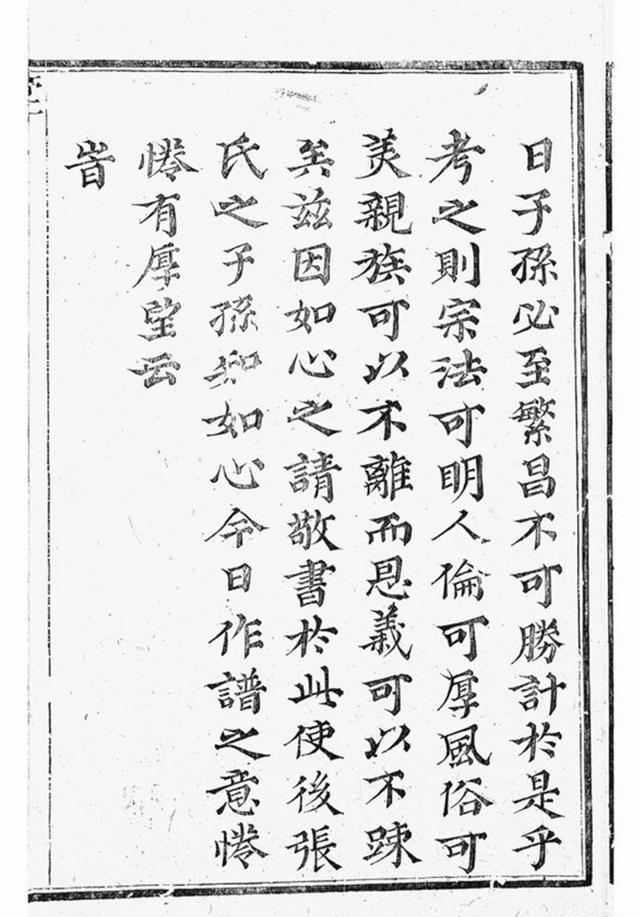 日子孫必至繁昌不可勝計於是乎
考之則宗法可明人倫可厚風俗可
美親族可以不離而恩義可以不踈
矣兹因如心之請敬書於此使後張
氏之子孫知如心今日作譜之意惓
惓有厚望云
旹